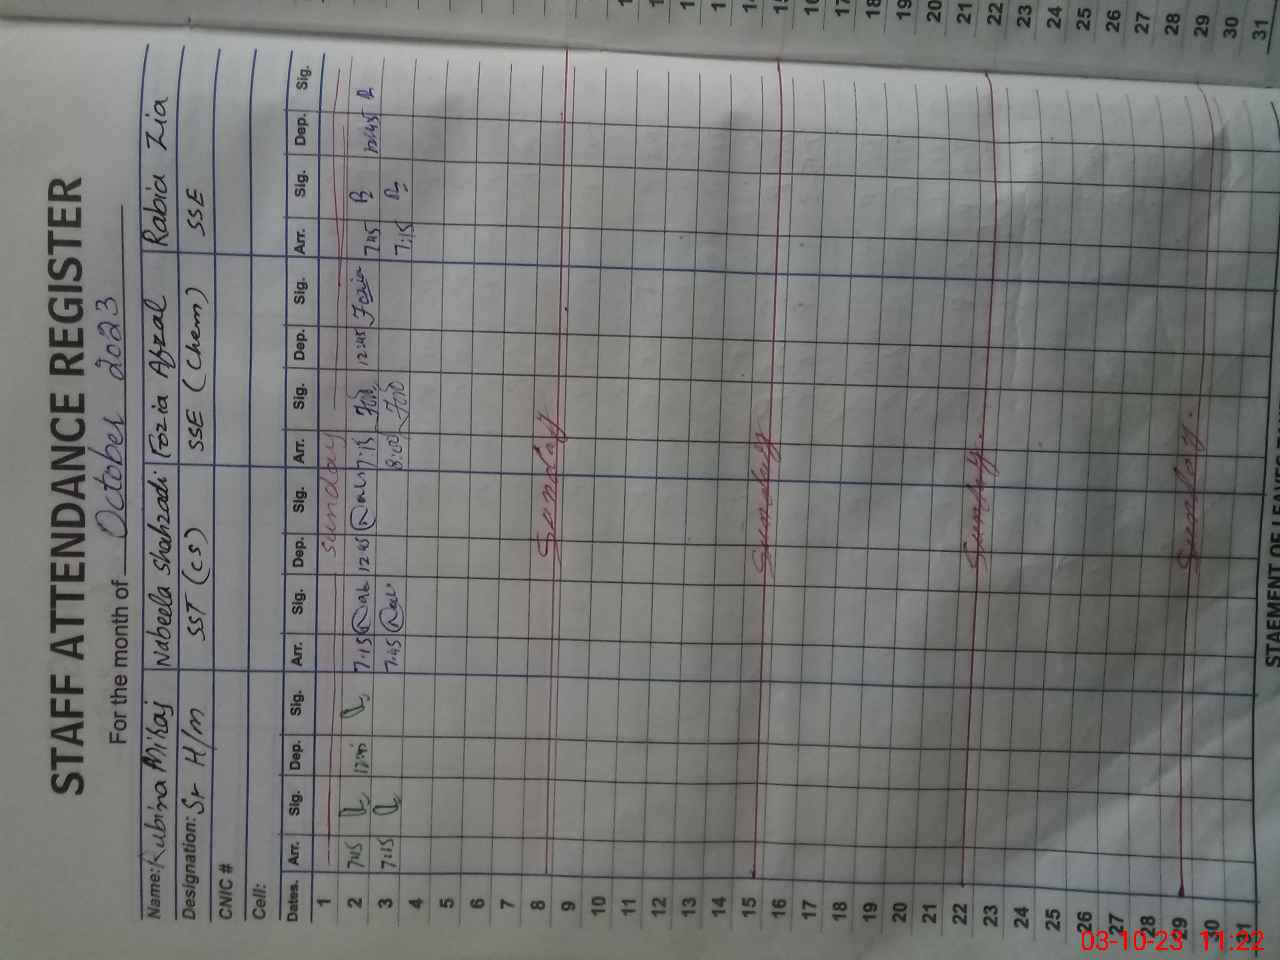 STAFF ATTENDANCE REGISTER
For the month of October 2023
Name: Rubina Miraj Nabeela Shahzadi Fozia Afzal Rabia Zia
Designation: Sr H/m SST (CS) SSE (Chem) SSE
CNIC #
Cell:
Dates. Arr. Sig. Dep. Sig. Arr. Sig. Dep. Sig. Arr. Sig. Dep. Sig. Arr. Sig. Dep. Sig.
1 Sunday
2 7:45 7:15 12:45 7:15 12:45 Fozia 7:45 12:45
3 7:15 7:45 8:00 7:15
4
5
6
7
8 Sunday
9
10
11
12
13
14
15 Sunday
16
17
18
19
20
21
22 Sunday
23
24
25
26
27
28
29 Sunday.
30
31
16
17
18
19
20
21
22
23
24
25
26
27
28
29
30
31
03-10-23 11:22